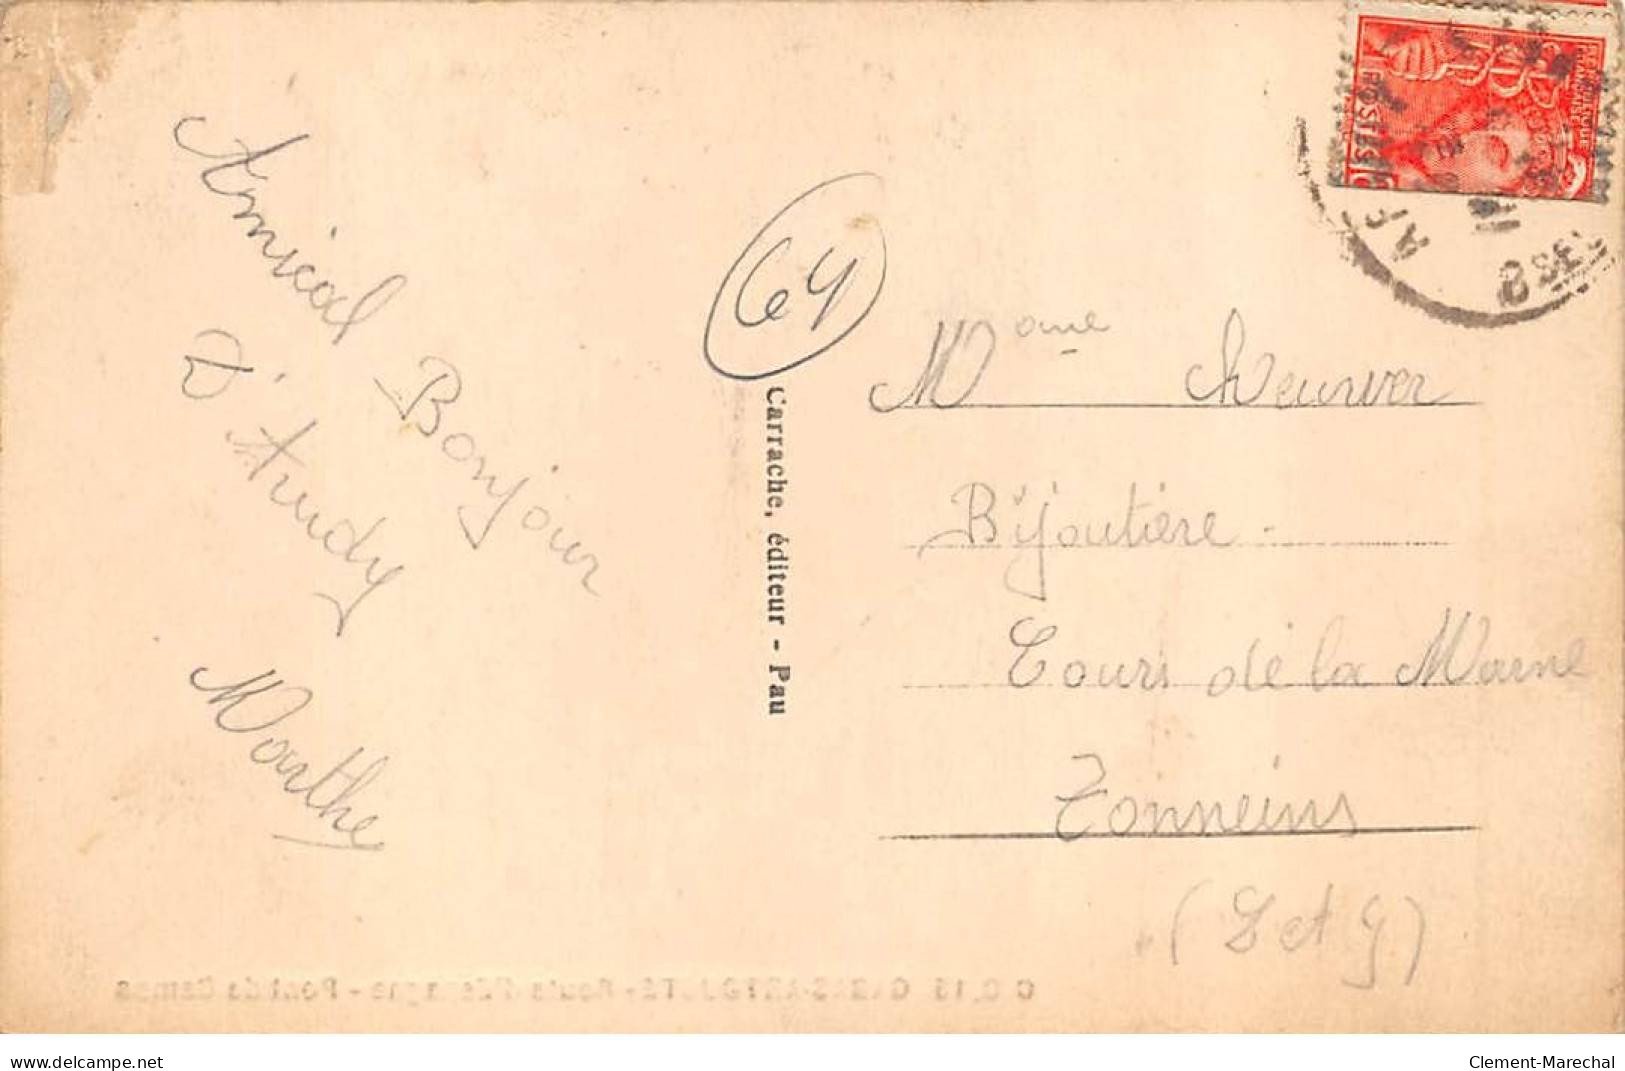 Amical Bonjour
D'Arudy
Marthe
64
Carrache, éditeur - Pau
Mme
Bijoutière
Cours de la Marne
Tonneins
(L et G)
POSTES
www.delcampe.net
Clement-Marechal